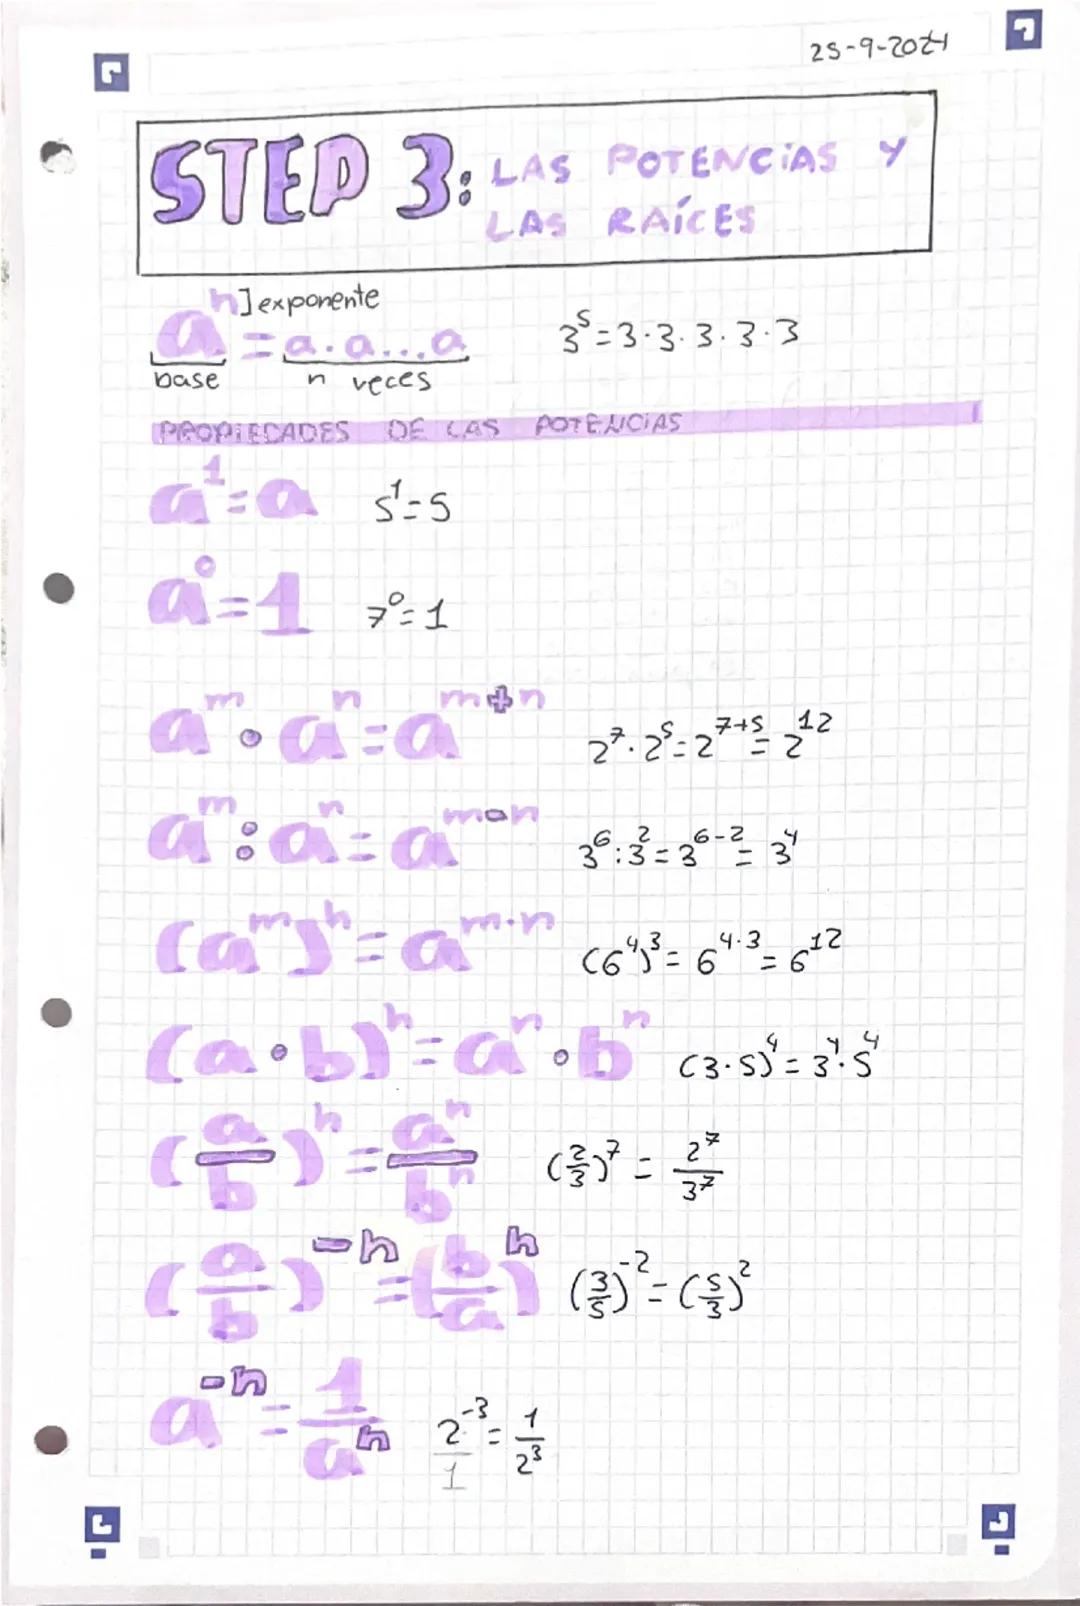 25-9-2024
STEP 3: LAS POTENCIAS Y
LAS RAÍCES
aⁿ ] exponente
aⁿ = a · a ... a    3⁵ = 3 · 3 · 3 · 3 · 3
base    n veces
PROPIEDADES DE LAS POTENCIAS
a¹ = a    5¹ = 5
a⁰ = 1    7⁰ = 1
aᵐ · aⁿ = aᵐ⁺ⁿ    2⁷ · 2⁵ = 2⁷⁺⁵ = 2¹²
aᵐ : aⁿ = aᵐ⁻ⁿ    3⁶ : 3² = 3⁶⁻² = 3⁴
(aᵐ)ⁿ = a^(m·n)    (6⁴)³ = 6^(4·3) = 6¹²
(a · b)ⁿ = aⁿ · bⁿ    (3 · 5)⁴ = 3⁴ · 5⁴
(a/b)ⁿ = aⁿ/bⁿ    (2/3)⁷ = 2⁷/3⁷
(a/b)⁻ⁿ = (b/a)ⁿ    (3/5)⁻² = (5/3)²
a⁻ⁿ = 1/aⁿ    2⁻³/1 = 1/2³